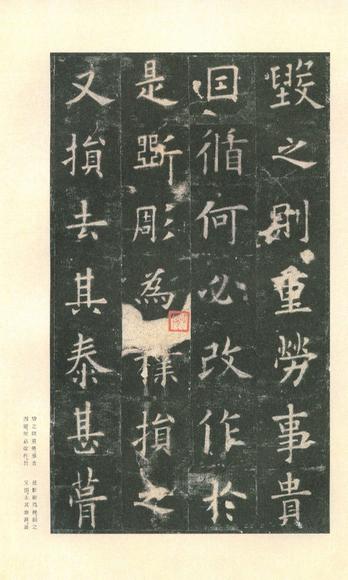 毀之則重勞事貴
因循何必改作於
是斲彫為樸損之
又損去其泰甚葺
毀之則重勞事貴 是斲彫為樸損之
因循何必改作於 又損去其泰甚葺